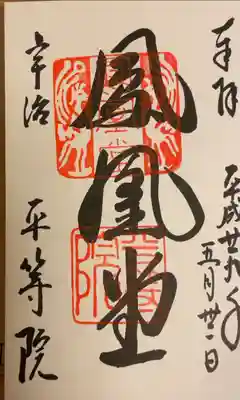 奉拝
平成廿九年
五月廿一日
鳳凰堂
宇治
平等院